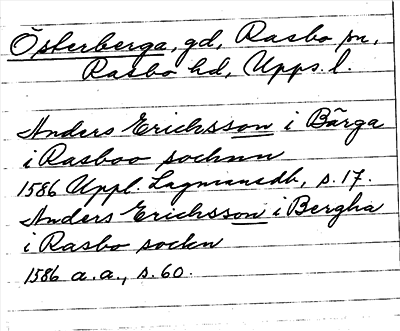 Österberga, gd, Rasbo sn,
Rasbo hd, Upps. l.
Anders Erichsson i Bärga
i Rasboo sochnn
1586 Uppl. Lagmansdb, s. 17.
Anders Erichsson i Bergha
i Rasbo sockn
1586 a. a., s. 60.